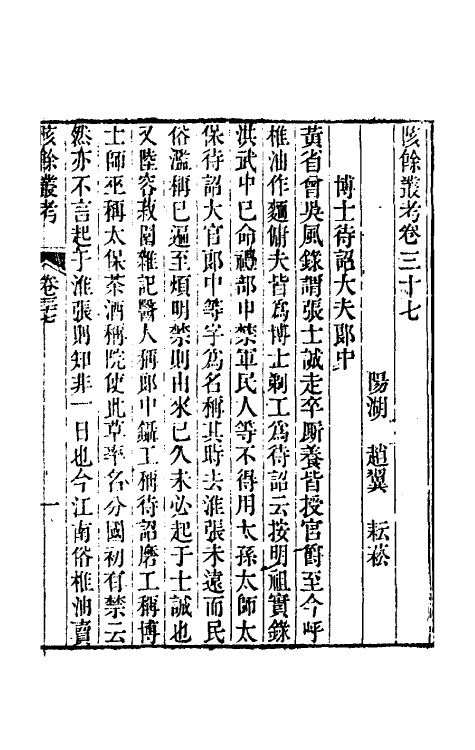 陔餘叢考卷三十七
陽湖 趙翼 耘菘
博士待詔大夫郎中
黃省曾吳風錄謂張士誠走卒厮養皆授官爵至今呼
椎油作麵傭夫皆爲博士剃工爲待詔云按明祖實錄
洪武中已命禮部申禁軍民人等不得用太孫太師太
保待詔大官郎中等字爲名稱其時去淮張未遠而民
俗濫稱已遍至煩明禁則由來已久未必起于士誠也
又陸容菽園雜記醫人稱郎中鑷工稱待詔磨工稱博
士師巫稱太保茶酒稱院使此草率名分國初有禁云
然亦不言起于淮張則知非一日也今江南俗椎油賣
陔餘叢考 卷三七 一